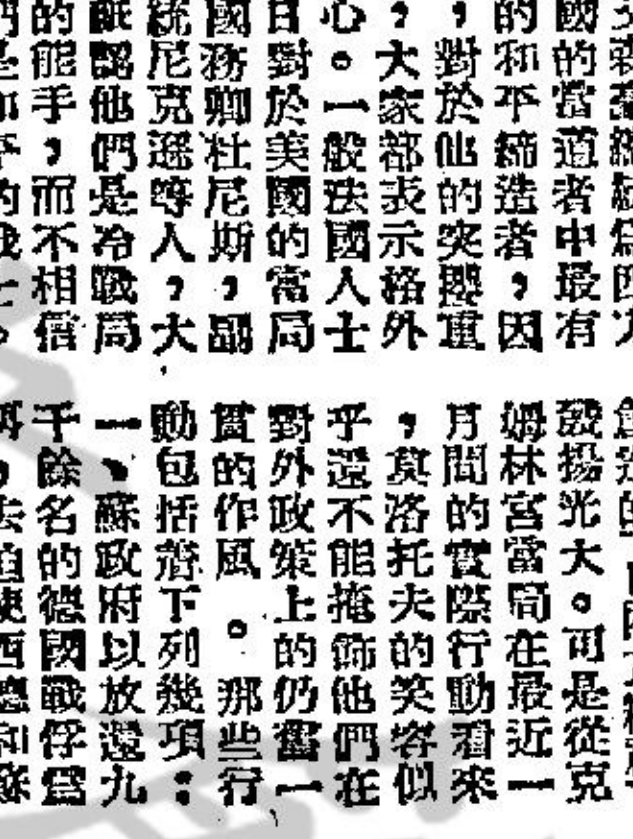 國的當道者中最有
的和平締造者，因
，對於他的突擊重
，大家都表示格外
心。一般法國人士
日對於美國的當局
國務卿杜尼斯，副
統尼克遜等人，大
認他們是冷戰局
的能手，而不相信
發揚光大。可是從克
姆林宮當局在最近一
月間的實際行動看來
，莫洛托夫的笑容似
乎還不能掩飾他們在
對外政策上的仍舊一
貫的作風。那些行
動包括着下列幾項：
一、蘇政府以放還九
千餘名的德國戰俘爲